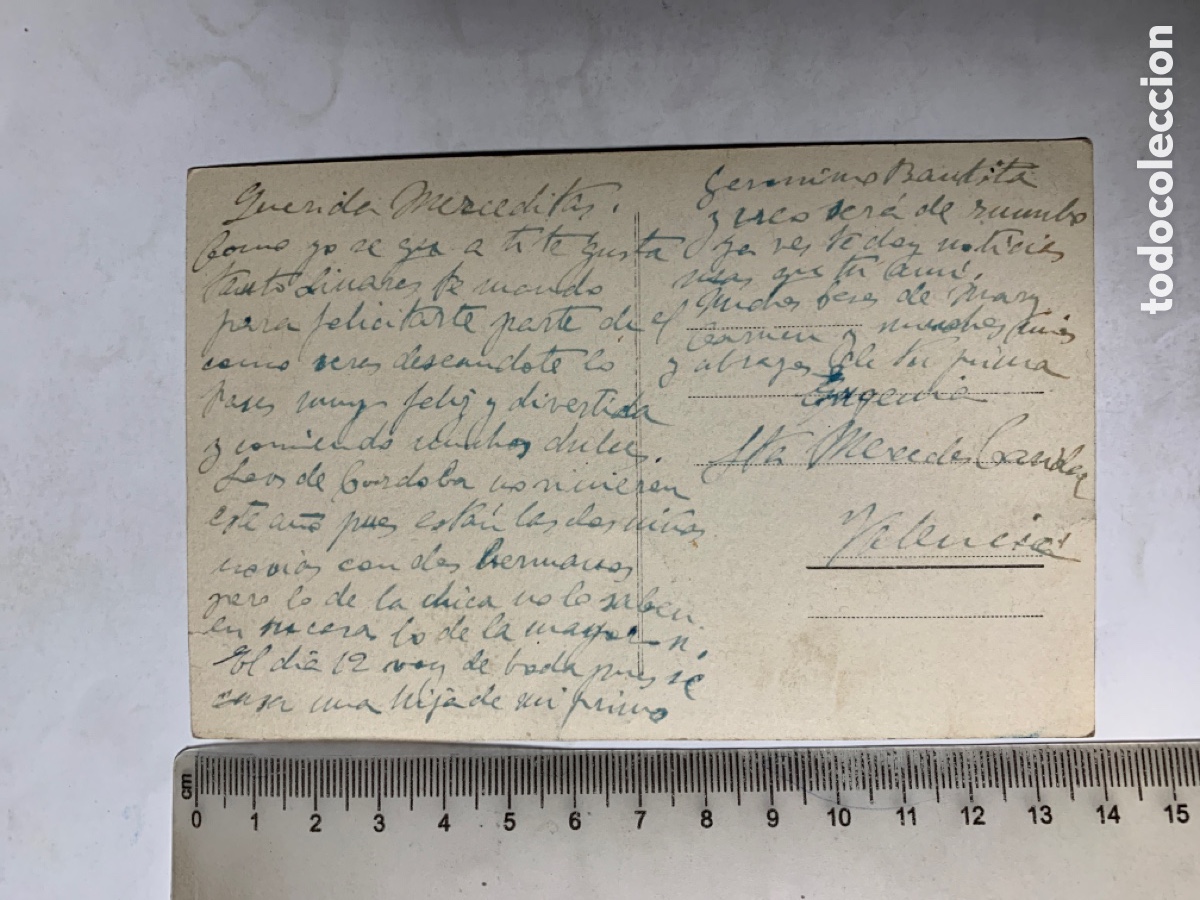 Querida Merceditas.
Como yo se que a ti te gusta
tanto Linares te mando
para felicitarte parte de el
como veras deseandote lo
pases muy feliz y divertida
y comiendo muchos dulces.
Los de Cordoba no vinieron
este año pues están las dos niñas
novias con dos hermanos
pero lo de la chica no lo saben
en su casa lo de la mayor si,
El dia 12 voy de boda pues se
casa una hija de mi primo
Geronimo Bautista
y creo será de rumbo
ya ves te doy noticias
mas que tu a mi.
Muchos besos de Mary
Carmen y muchos
y abrazos de tu prima
Eugenia
Sta Mercedes
Valencia
todocoleccion
cm
0 1 2 3 4 5 6 7 8 9 10 11 12 13 14 15